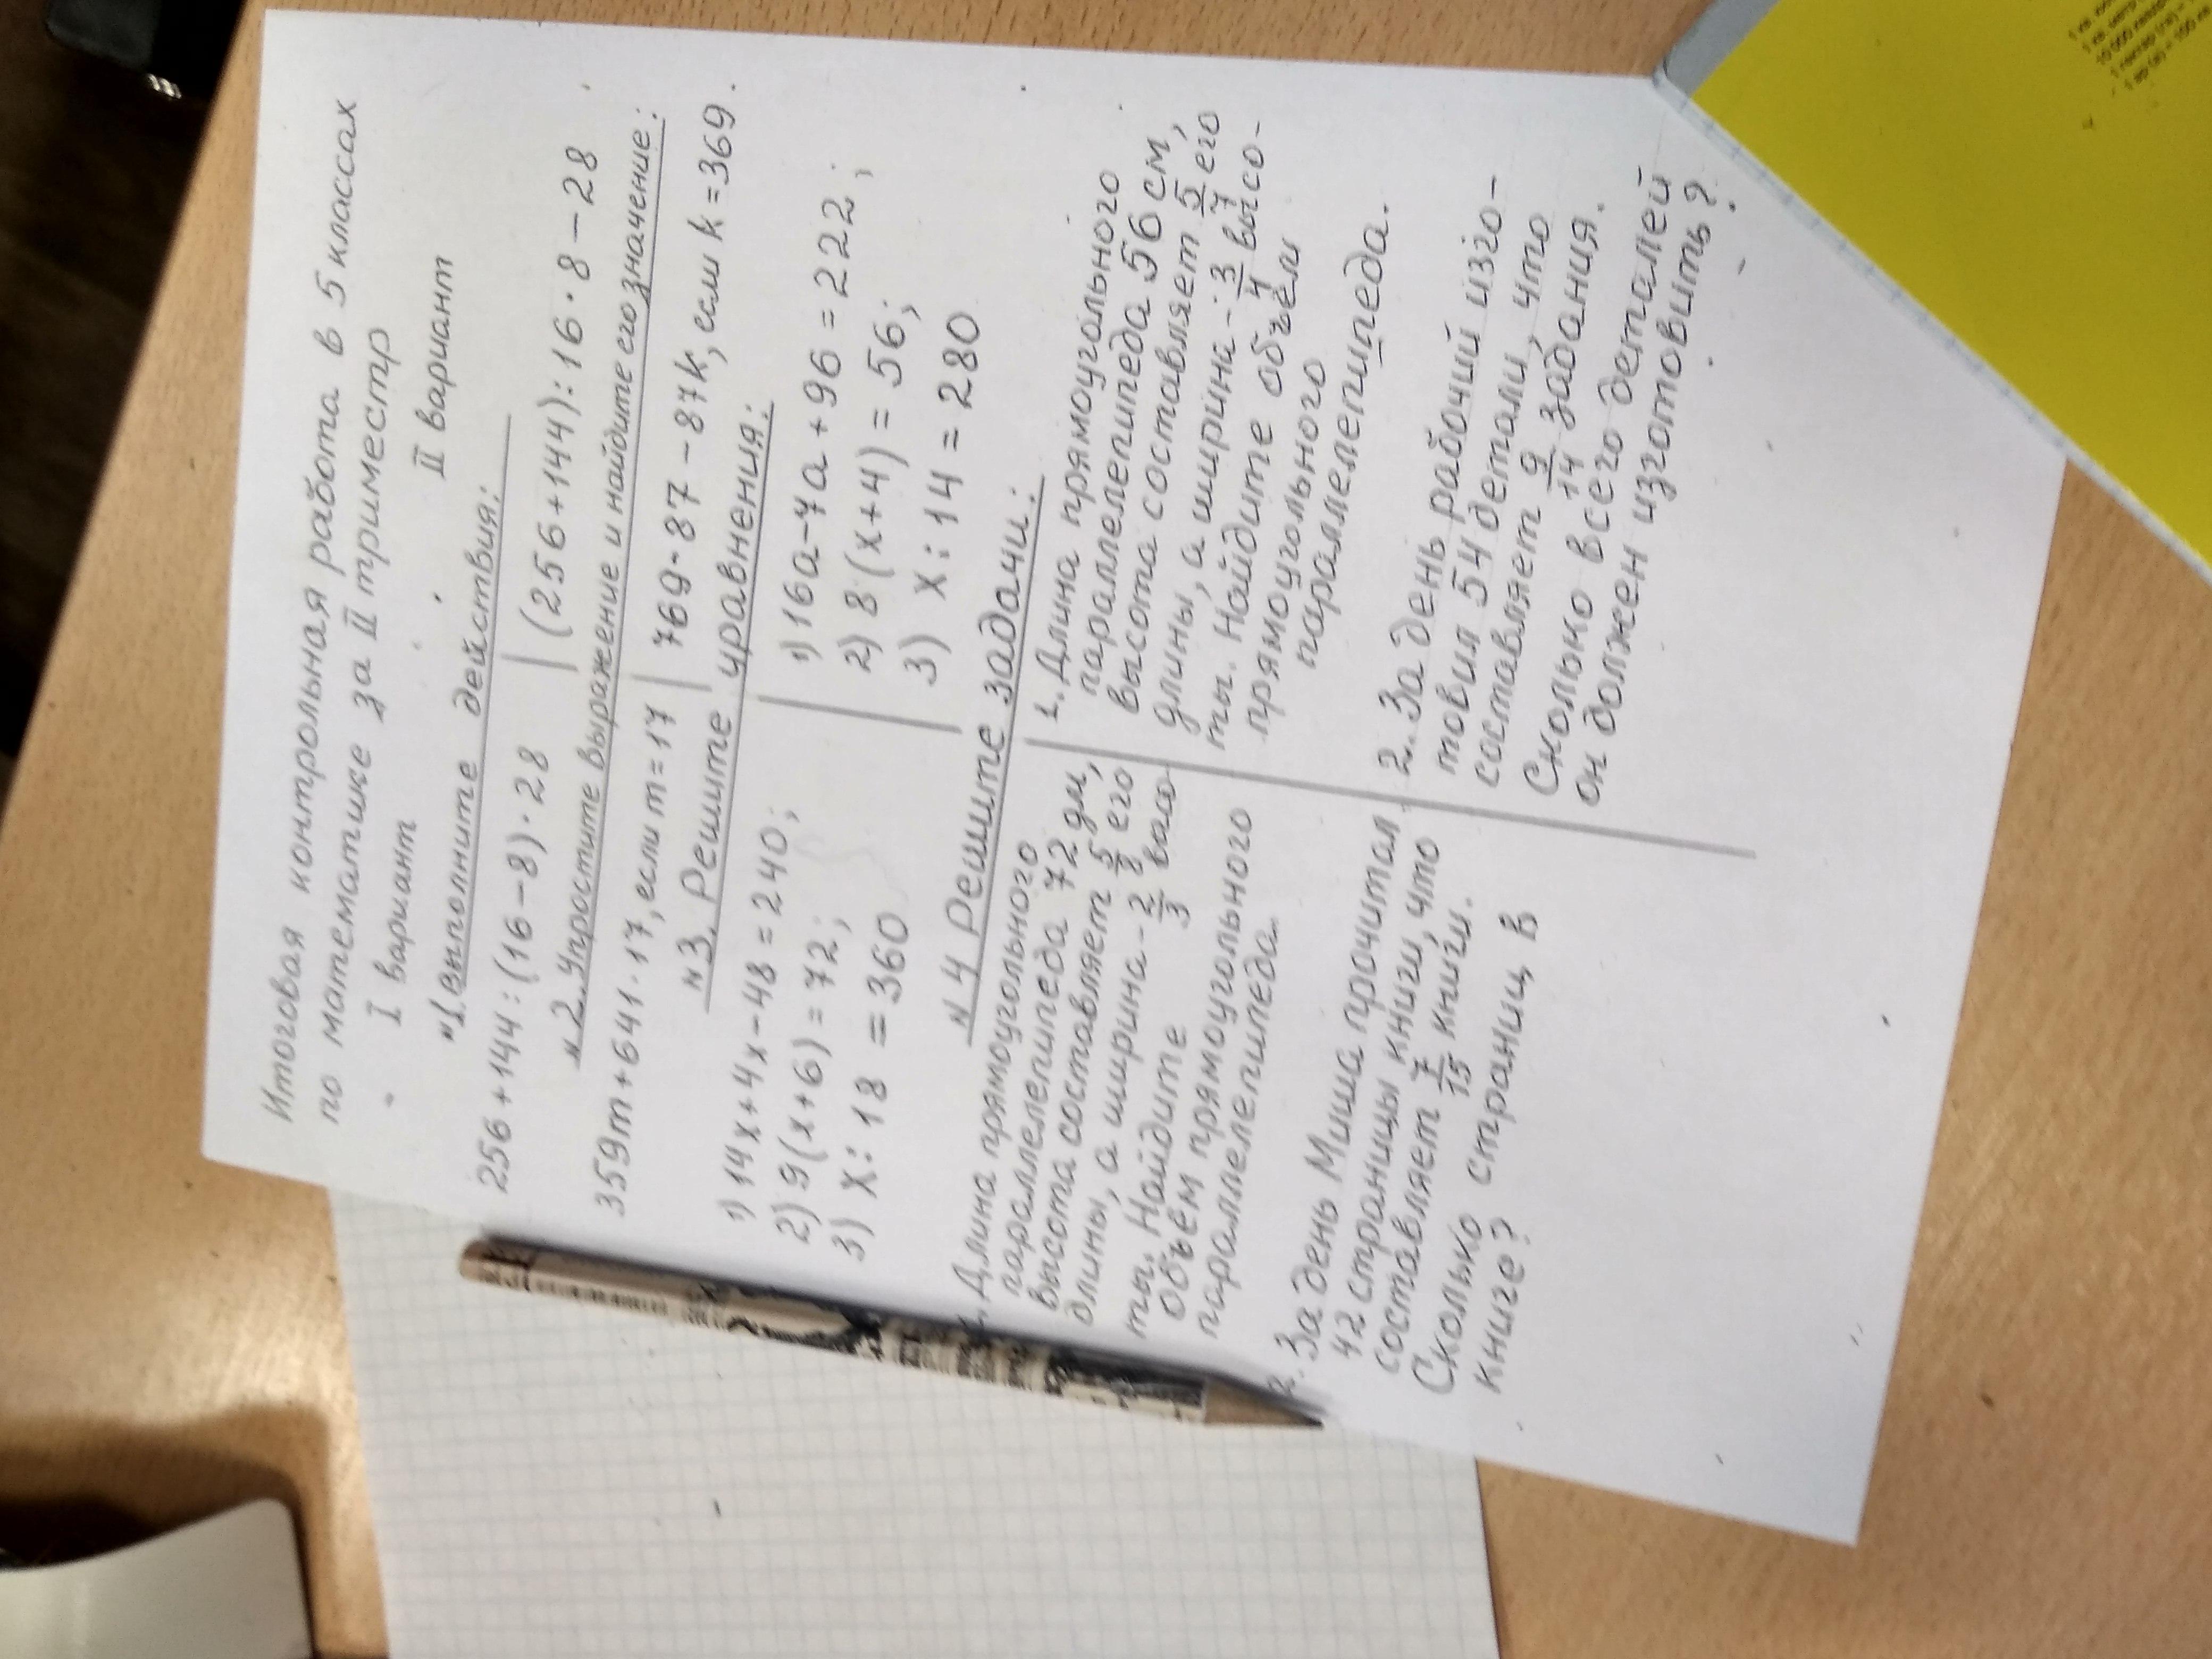 Итоговая контрольная работа в 5 классах
по математике за II триместр
I вариант II вариант
№1. Выполните действия:
256+144:(16-8)·28 (256+144):16·8-28
№2. Упростите выражение и найдите его значение:
359m+641·17, если m=17 769·87-87k, если k=369.
№3. Решите уравнения:
1) 14x+4x-48=240;
2) 9(x+6)=72;
3) x:18=360
1) 16a-7a+96=222;
2) 8(x+4)=56;
3) x:14=280
№4 Решите задачи:
Длина прямоугольного
параллелепипеда 72 дм,
высота составляет 5/8 его
длины, а ширина - 2/3 высо-
ты. Найдите
объём прямоугольного
параллелепипеда.
2. За день Миша прочитал
42 страницы книги, что
составляет 7/15 книги.
Сколько страниц в
книге?
1. Длина прямоугольного
параллелепипеда 56 см,
высота составляет 5/7 его
длины, а ширина - 3/4 высо-
ты. Найдите объём
прямоугольного
параллелепипеда.
2. За день рабочий изго-
товил 54 детали, что
составляет 9/14 задания.
Сколько всего деталей
он должен изготовить?